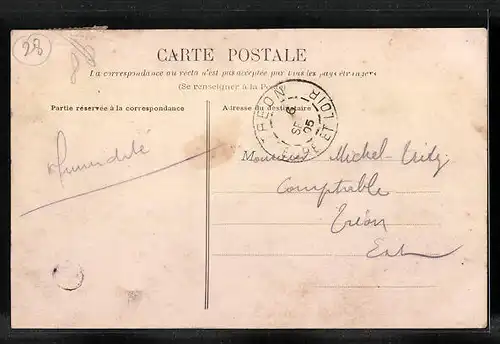 28
CARTE POSTALE
La correspondance au recto n'est pas acceptée par tous les pays étrangers
(Se renseigner à la Poste)
Partie réservée à la correspondance
Adresse du destinataire
TREON
6
SE
05
EURE ET LOIR
Monsieur Michel
Comptable
Tréon